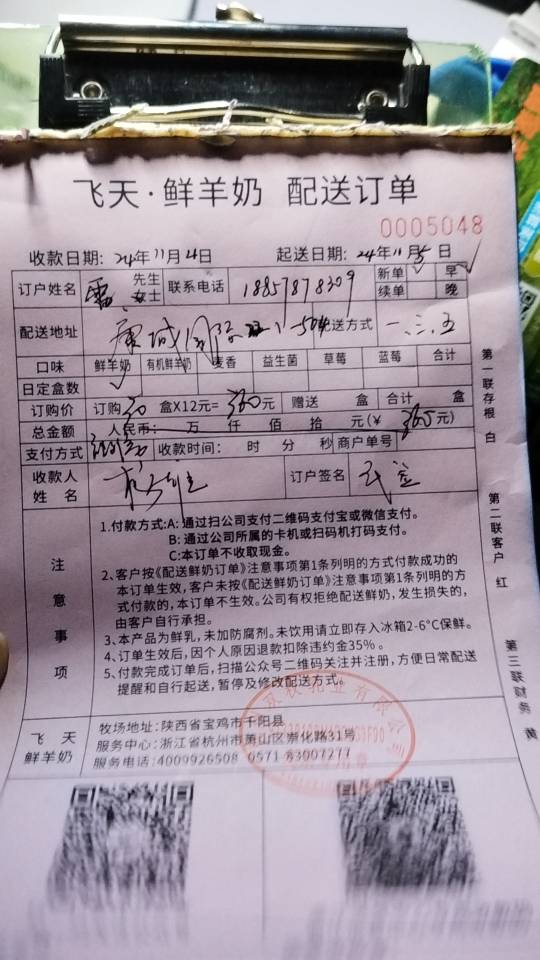 飞天·鲜羊奶 配送订单
0005048
收款日期：24年11月4日 起送日期：24年11月5日
订户姓名 雷 先生 女士 联系电话 18857878309 新单 早
续单 晚
配送地址 康城国际 11-504 配送方式 一、三、五
口味 鲜羊奶 有机鲜羊奶 麦香 益生菌 草莓 蓝莓 合计
日定盒数
订购价 订购30盒X12元=360元 赠送 盒 合计 盒
总金额 人民币： 万 仟 佰 拾 元(￥365元)
支付方式 收款时间： 时 分 秒 商户单号
收款人姓名 订户签名
注意事项
1.付款方式:A: 通过扫公司支付二维码支付宝或微信支付。
B: 通过公司所属的卡机或扫码机打码支付。
C:本订单不收取现金。
2、客户按《配送鲜奶订单》注意事项第1条列明的方式付款成功的
本订单生效，客户未按《配送鲜奶订单》注意事项第1条列明的方
式付款的，本订单不生效。公司有权拒绝配送鲜奶，发生损失的，
由客户自行承担。
3、本产品为鲜乳，未加防腐剂。未饮用请立即存入冰箱2-6°C保鲜。
4、订单生效后，因个人原因退款扣除违约金35%。
5、付款完成订单后，扫描公众号二维码关注并注册，方便日常配送
提醒和自行起送，暂停及修改配送方式。
飞天
鲜羊奶
牧场地址：陕西省宝鸡市千阳县
服务中心：浙江省杭州市萧山区崇化路31号
服务电话：4009926508 0571-83007277
第一联存根 白
第二联客户 红
第三联财务 黄